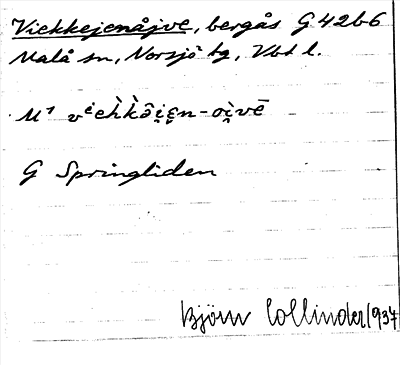 Viekkejenåjve, bergås G 42b6
Malå sn, Norsjö tg, Vbt l.
M¹ vⁱeh̀k̀ô̭i̭ε̮n-oì̭vē
G Springliden
Björn Collinder 1937